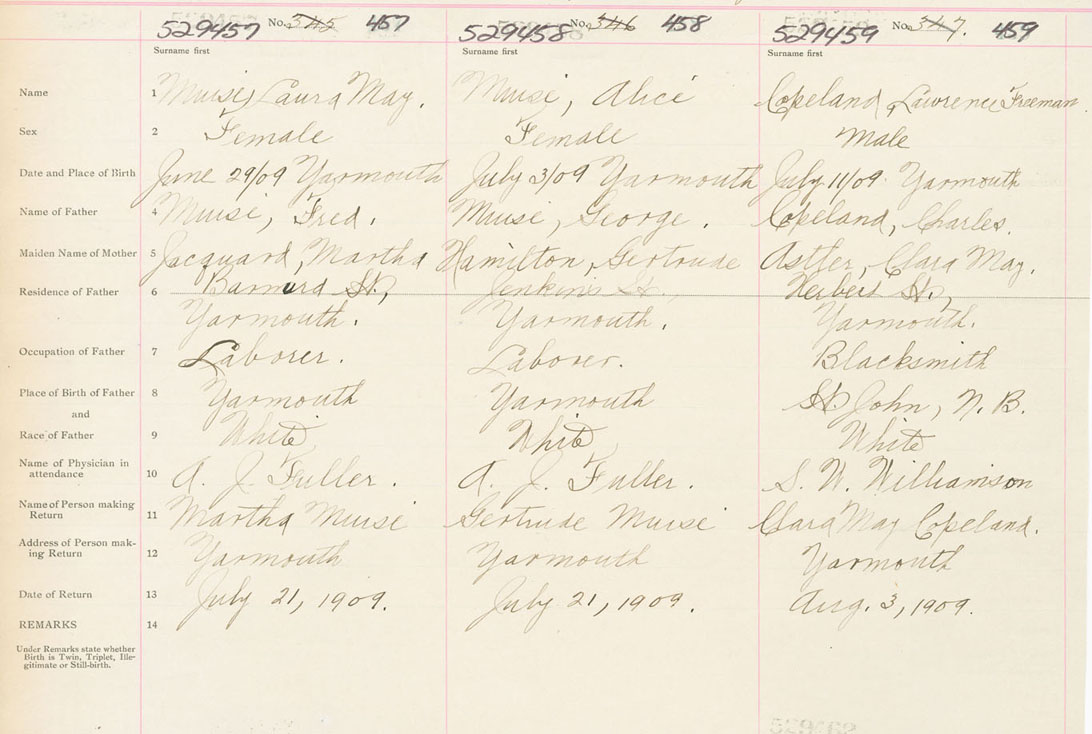 529457 No. 345 457 529458 No. 346 458 529459 No. 347. 459
Surname first Surname first Surname first
Name 1 Muise, Laura May. Muise, Alice Copeland, Lawrence Freeman
Sex 2 Female Female Male
Date and Place of Birth June 29/09 Yarmouth July 3/09 Yarmouth July 11/09. Yarmouth
Name of Father 4 Muise, Fred. Muise, George. Copeland, Charles.
Maiden Name of Mother 5 Jacquard, Martha Hamilton, Gertrude Clara May.
Residence of Father 6 Barnard St., Jenkins St., Herbert St.,
Yarmouth. Yarmouth. Yarmouth.
Occupation of Father 7 Laborer. Laborer. Blacksmith
Place of Birth of Father 8 Yarmouth Yarmouth St. John, N. B.
and
Race of Father 9 White White White
Name of Physician in
attendance 10 A. J. Fuller. A. J. Fuller. S. W. Williamson
Name of Person making
Return 11 Martha Muise Gertrude Muise Clara May Copeland.
Address of Person mak-
ing Return 12 Yarmouth Yarmouth Yarmouth
Date of Return 13 July 21, 1909. July 21, 1909. Aug. 3, 1909.
REMARKS 14
Under Remarks state whether
Birth is Twin, Triplet, Ille-
gitimate or Still-birth.